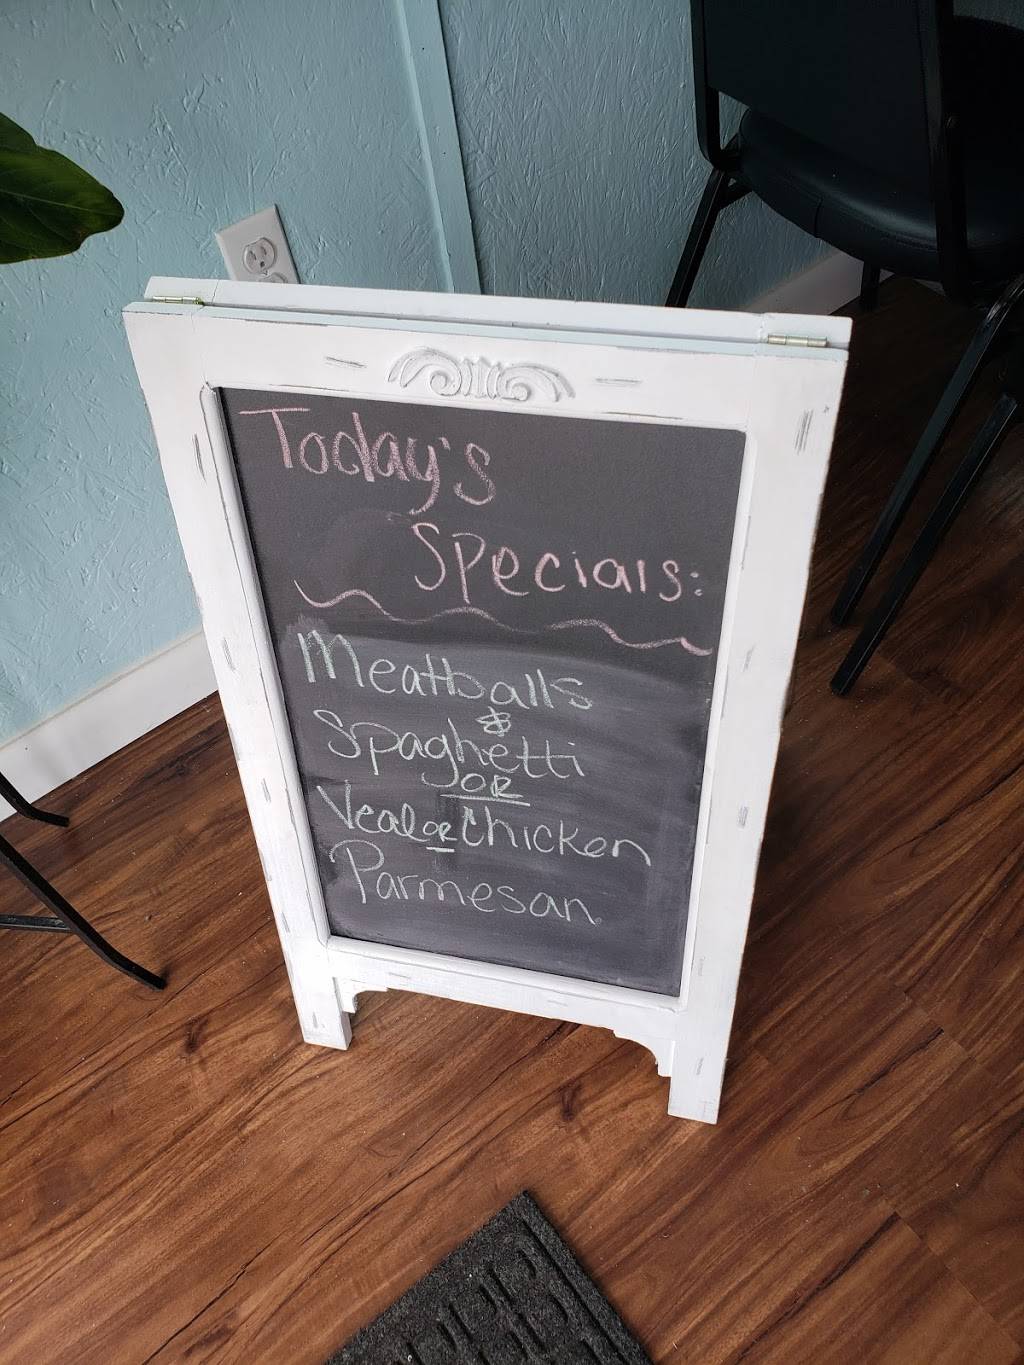 Today's
Specials:
Meatballs
&
Spaghetti
OR
Veal OR Chicken
Parmesan